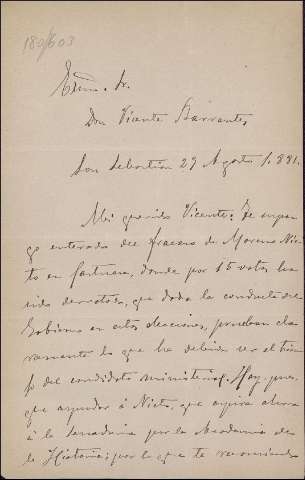 180/603
Exmo. Sr.
Don Vicente Barrantes,
San Sebastián 29 Agosto 1.881.
Mi querido Vicente: Te supon-
go enterado del fracaso de Moreno Nie-
to en                , donde por 15 votos ha
sido derrotado, que dada la conducta del
Gobierno en estas elecciones, prueban cla-
ramente lo que ha debido ser el triun-
fo del candidato ministerial. Hay pues,
que ayudar á Nieto, que aspira ahora
á la senaduria por la Academia de
la Historia; por lo que te recomiendo